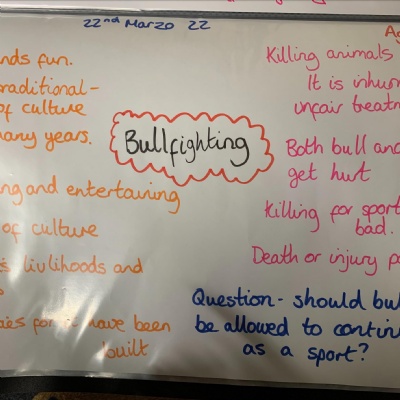 22nd Marzo 22
nds fun.
raditional -
of culture
many years.
ng and entertaining
of culture
s livlihoods and
ies for it have been
built
Bullfighting
Killing animals
It is inhum
unfair treatm
Both bull and
get hurt
Killing for sport
bad.
Death or injury po
Question - should bul
be allowed to contin
as a sport?